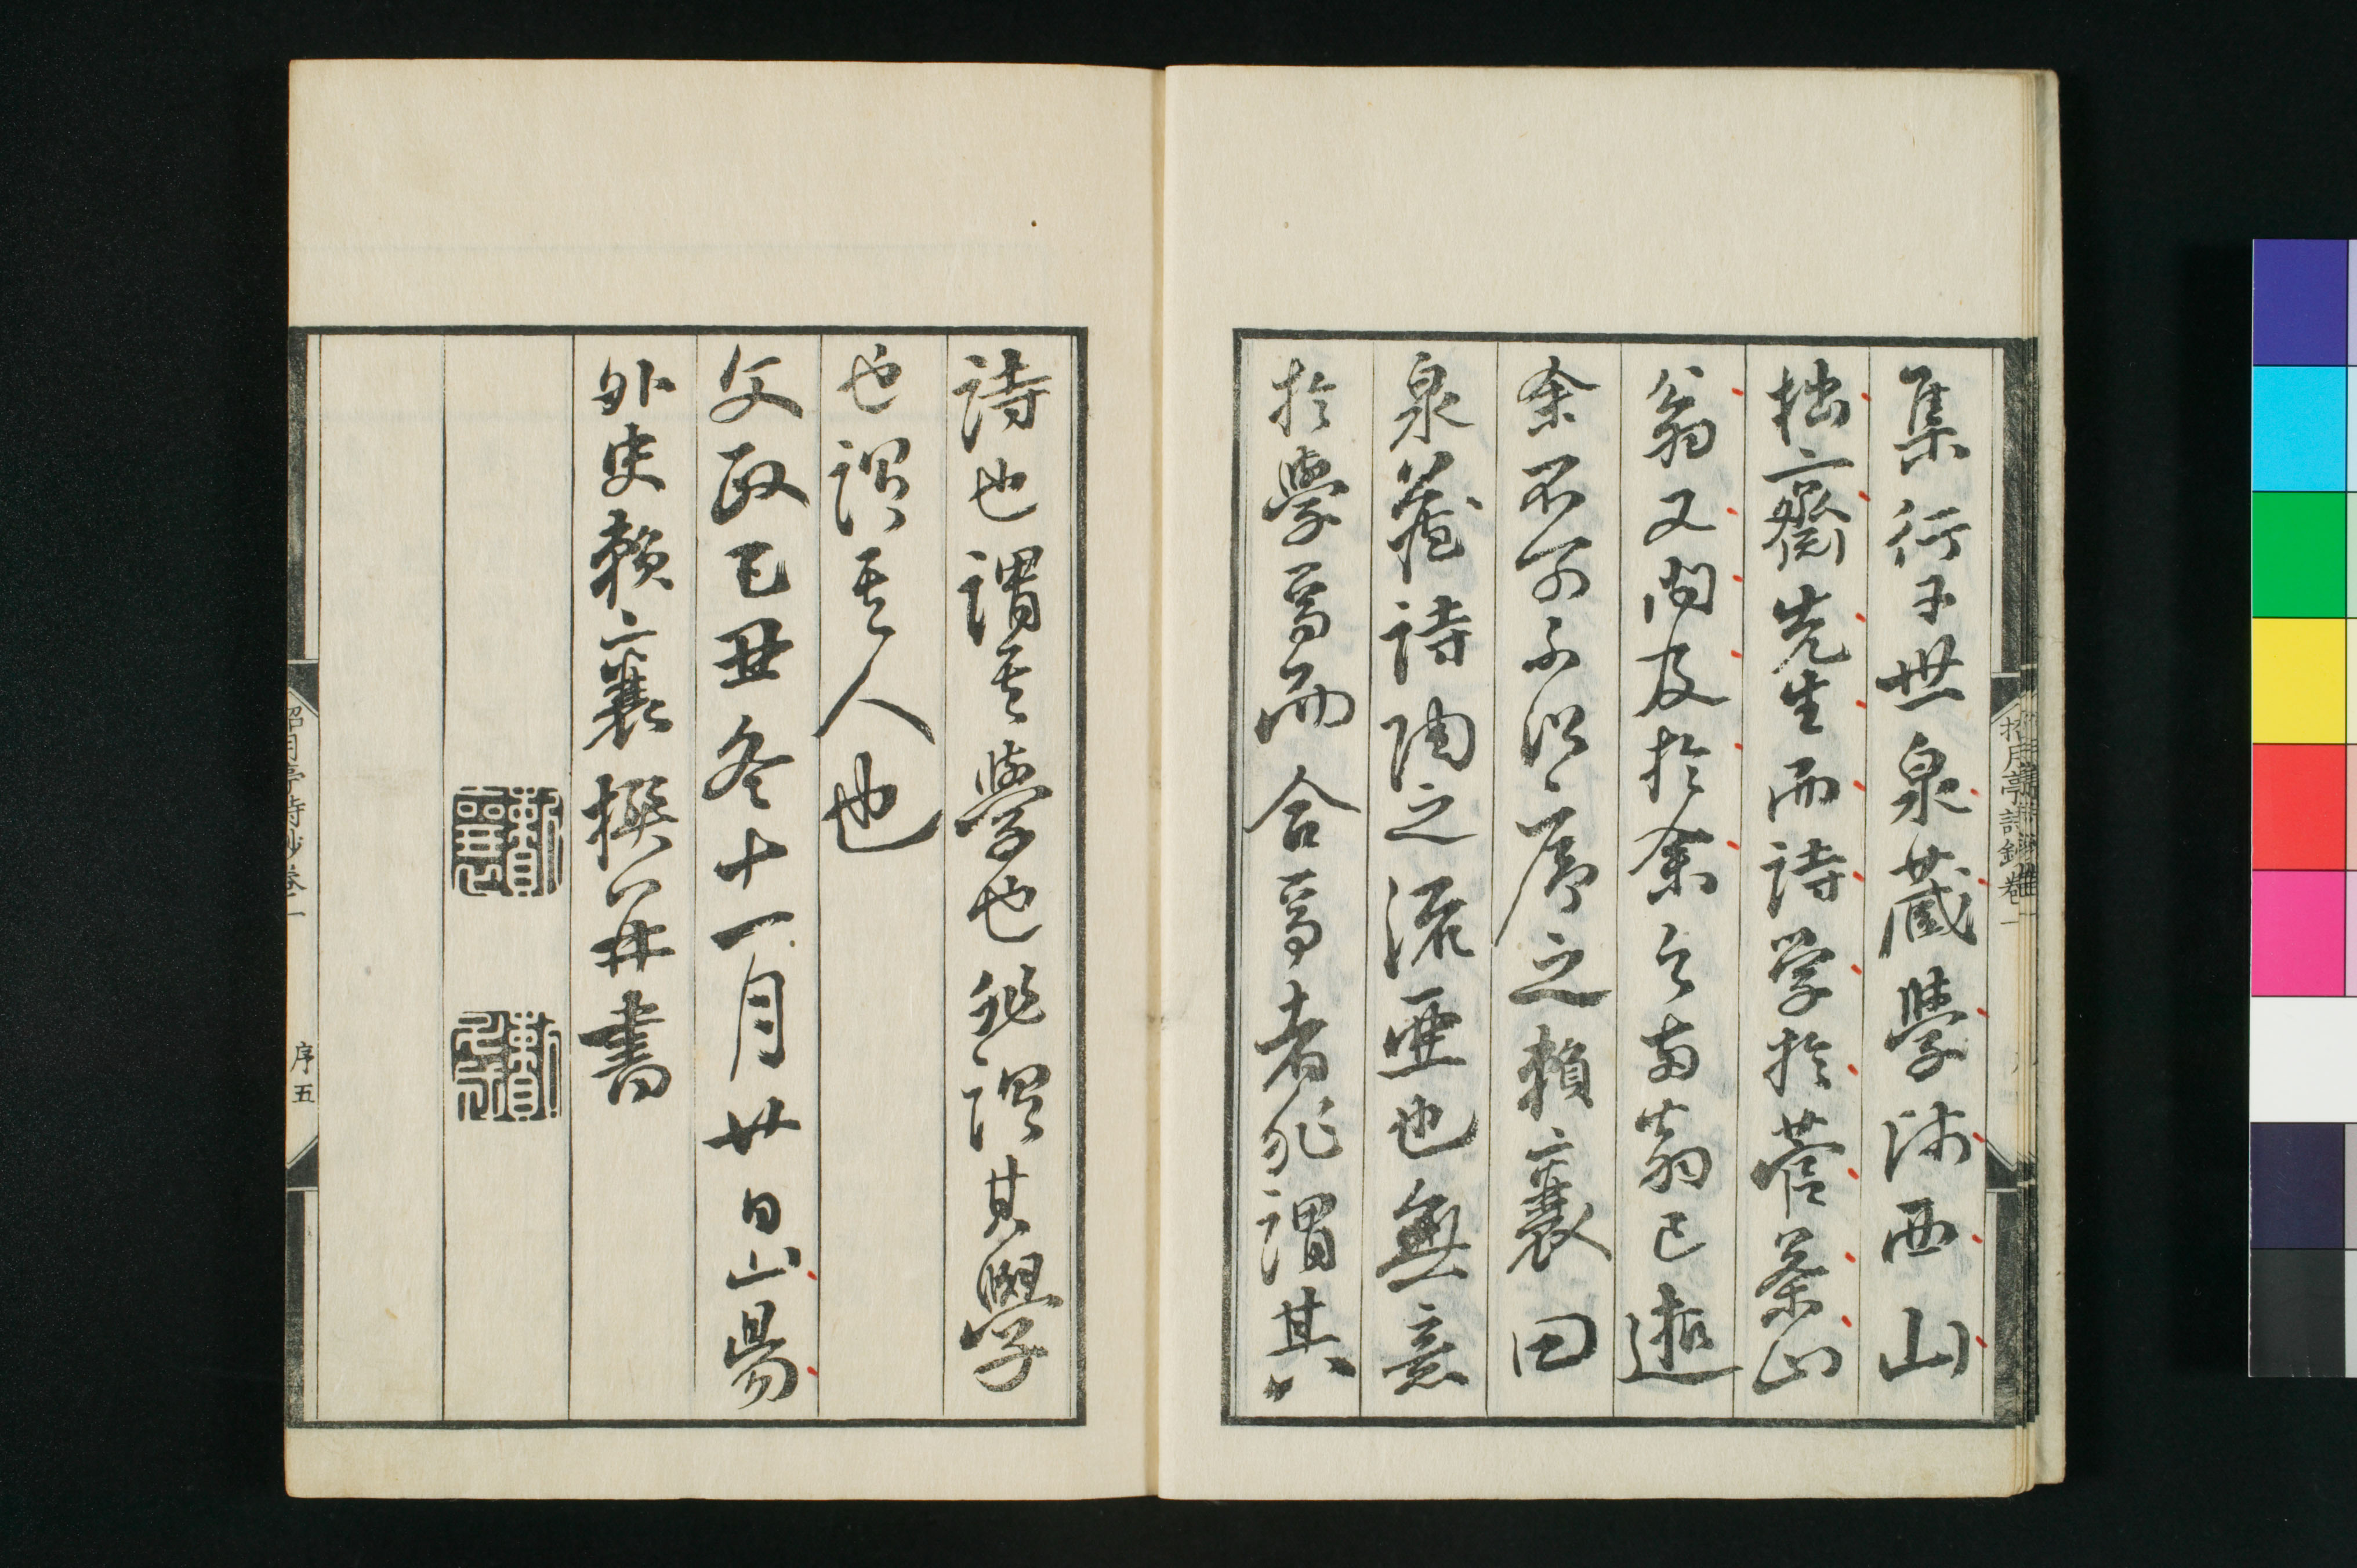 集行于世泉蔵學詩西山
拙齋先生而詩学於菅茶山
翁又問及於余今兩翁已逝
余不可不得序之賴襄曰
泉蔵詩陶之流亜也無意
於學焉而合焉者非謂其
詩也謂其學也非謂其學
也謂其人也
文政己丑冬十一月廿日山陽
外史賴襄撰并書
招月亭詩鈔巻一
序五